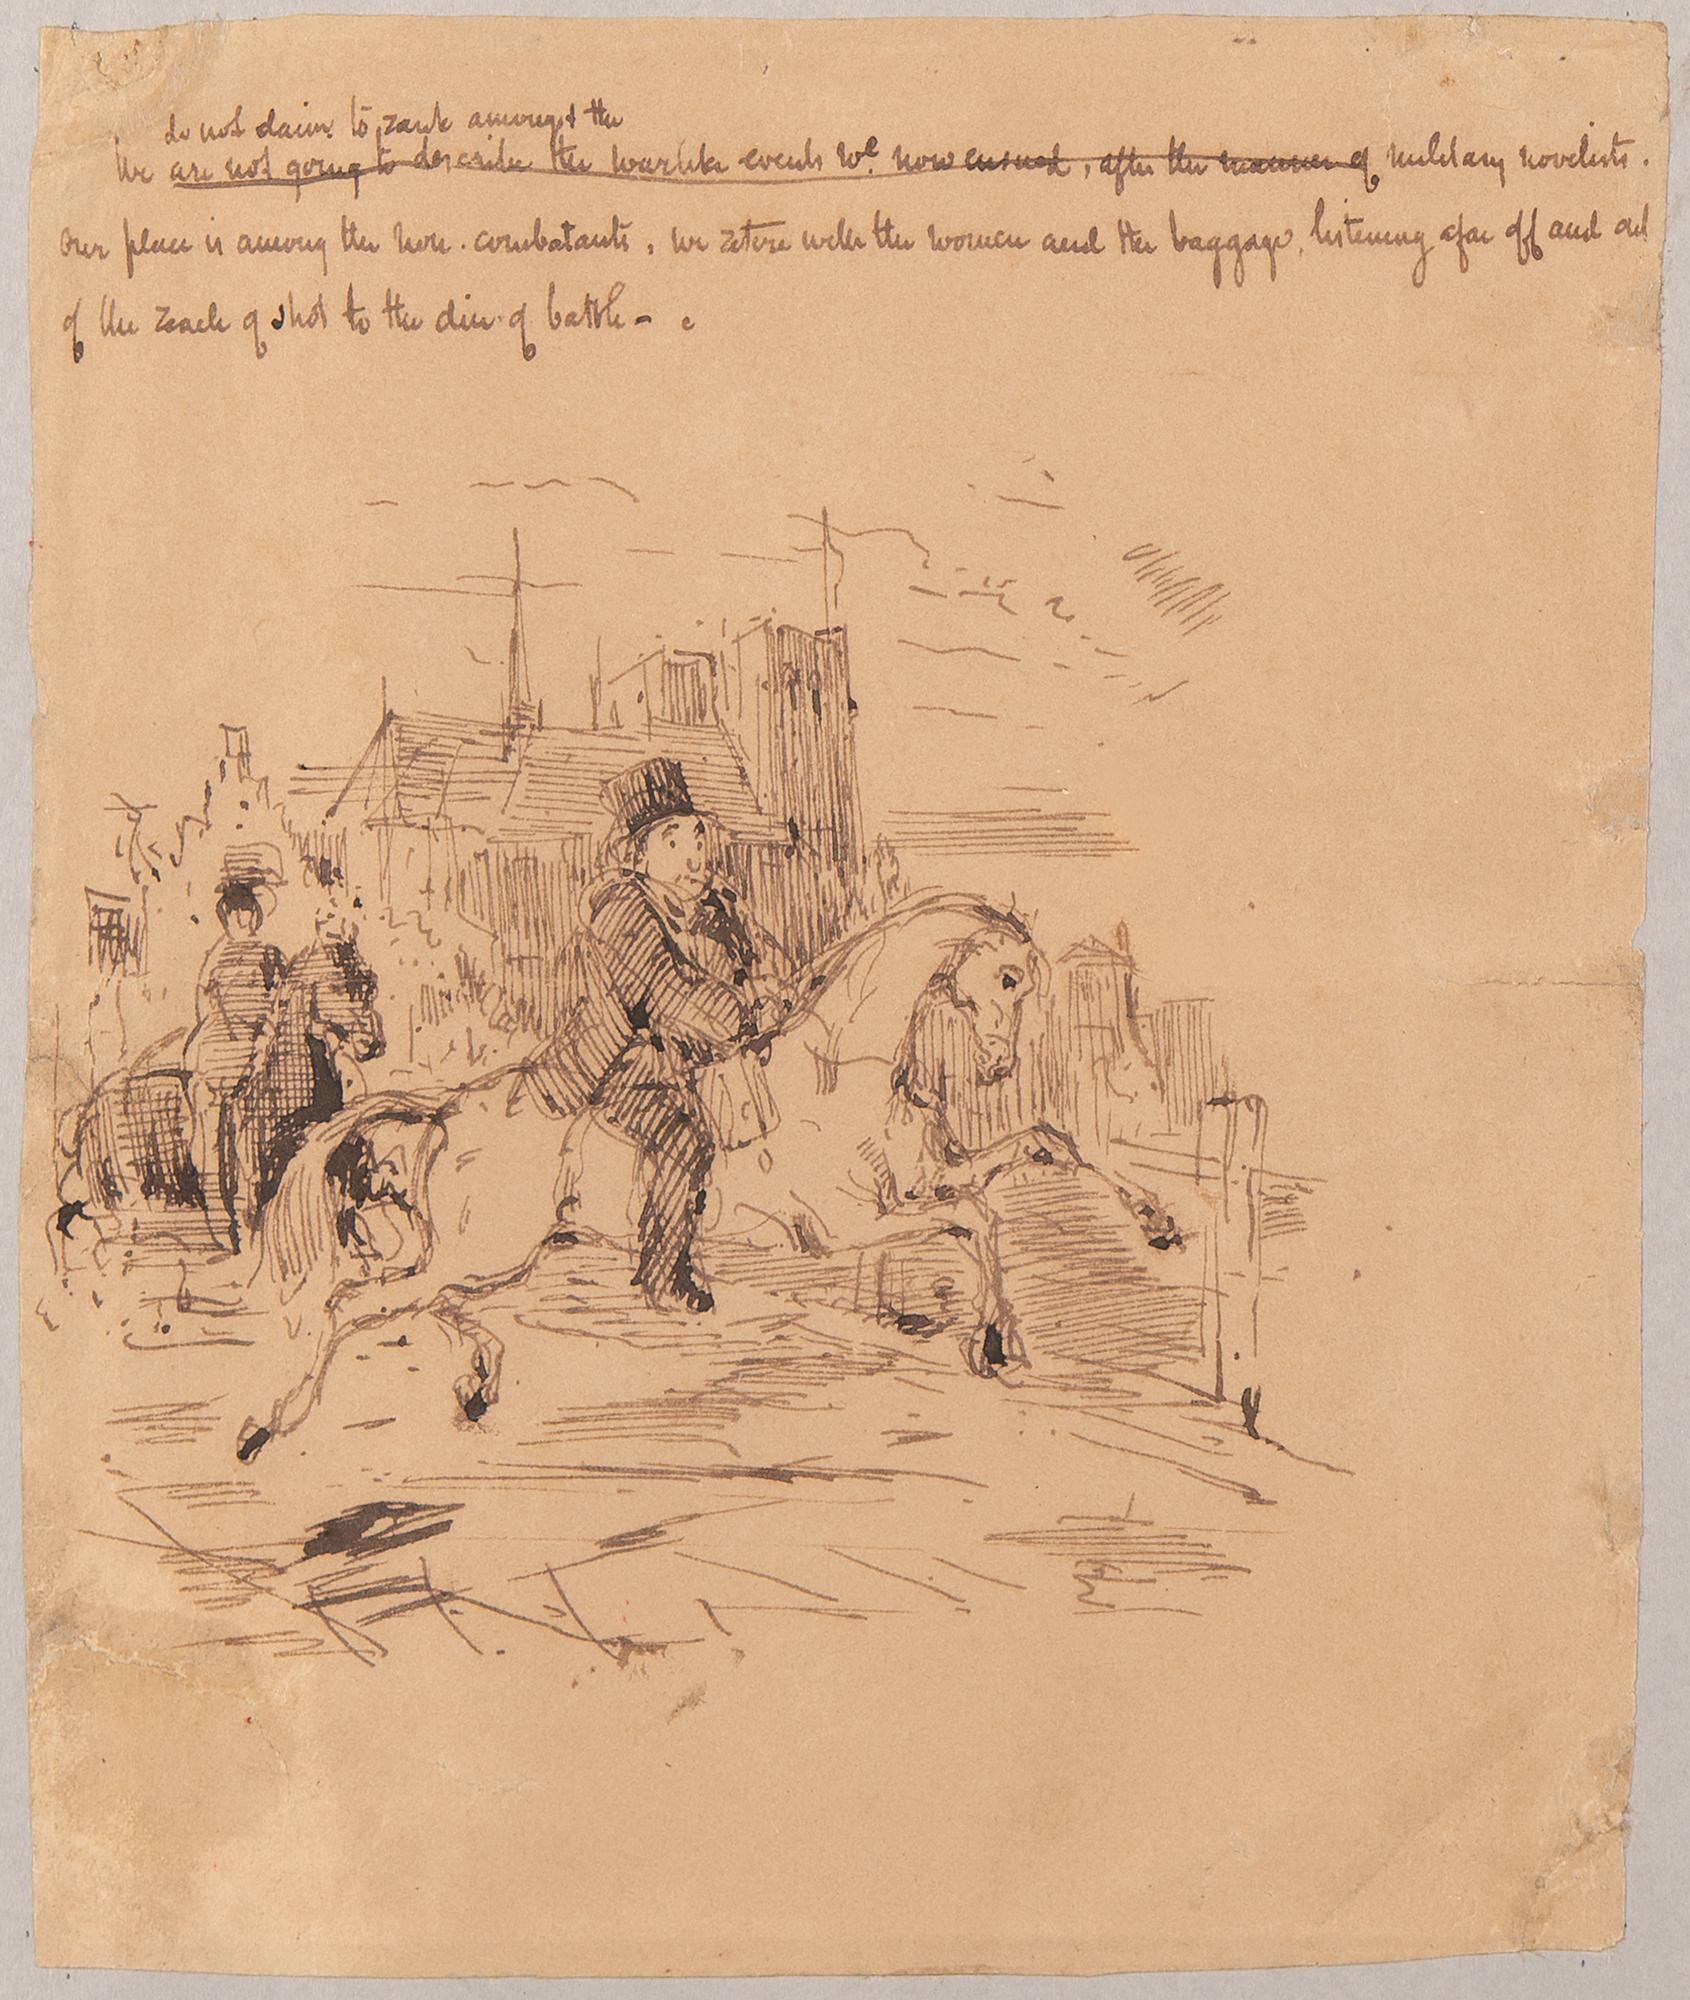 do not claim to rank amongst the
We are not going to describe the warlike events wᵉ. now ensued, after the manner of military novelists.
Our place is among the non. combatants, we retire with the women and the baggage, listening afar off and out
of the reach of shot to the din of battle -